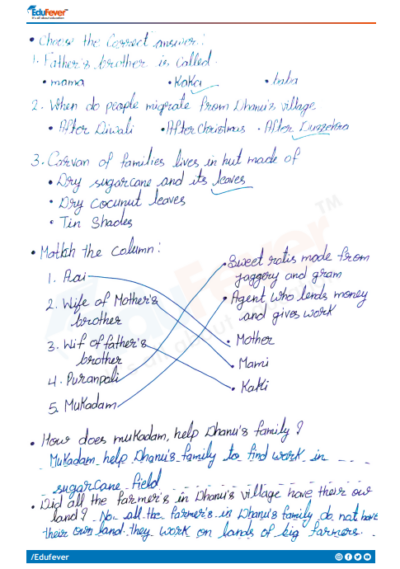 EduFever
• Choose the Correct answer:
1. Father's brother is called.
• mama • Kaka • baba
2. When do people migrate from Dhanu's village
• After Diwali • After Christmas • After Dussehra
3. Carvan of families lives in hut made of
• Dry sugarcane and its leaves
• Dry Cocunut leaves
• Tin Shades
• Match the Column:
1. Aai
2. Wife of Mother's
brother
3. Wif of father's
brother
4. Puranpoli
5. Mukadam
• Sweet rotis made from
jaggery and gram
• Agent who lends money
and gives work
• Mother
• Mami
• Kaki
• How does mukadam, help Dhanu's family?
Mukadam help Dhanu's family to find work in
sugarcane field
• Did all the farmer's in Dhanu's village have their ow
land? No all the farmer's in Dhanu's family do not have
their own land they work on lands of big farmers.
/Edufever